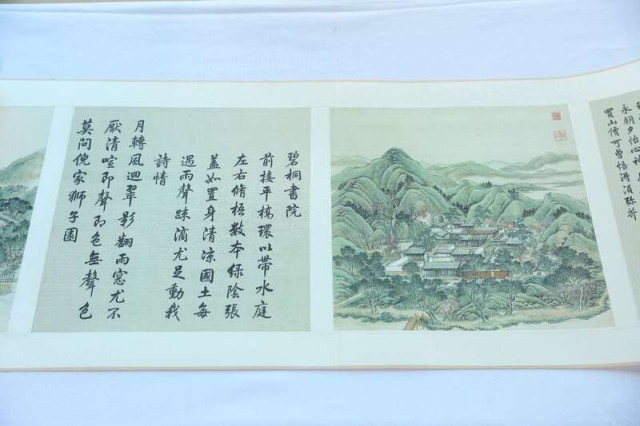 永朝夕怡心
買山價可曾悟得須彌芥
碧桐書院
前接平橋環以帶水庭
左右脩梧數本綠陰張
蓋如置身清涼國土每
遇雨聲踈滴尤足動我
詩情
月轉風迴翠影翻雨窗尤不
厭清喧即聲即色無聲色
莫問倪家獅子園